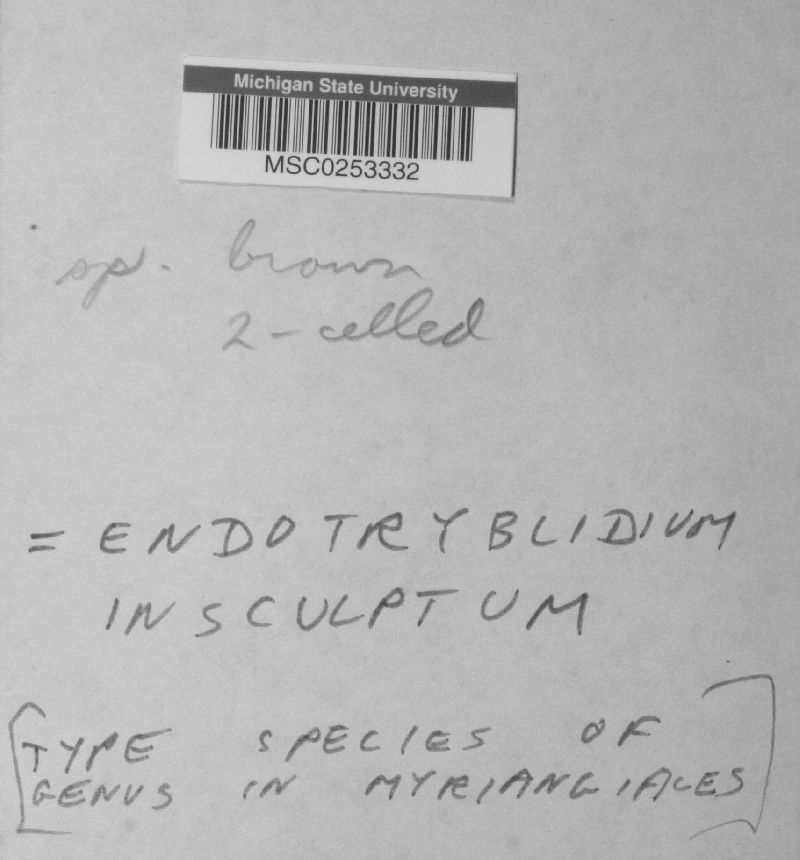 Michigan State University
MSC0253332
sp. brown
2-celled
= ENDOTRYBLIDIUM
INSCULPTUM
[TYPE SPECIES OF
GENUS IN MYRIANGIALES]